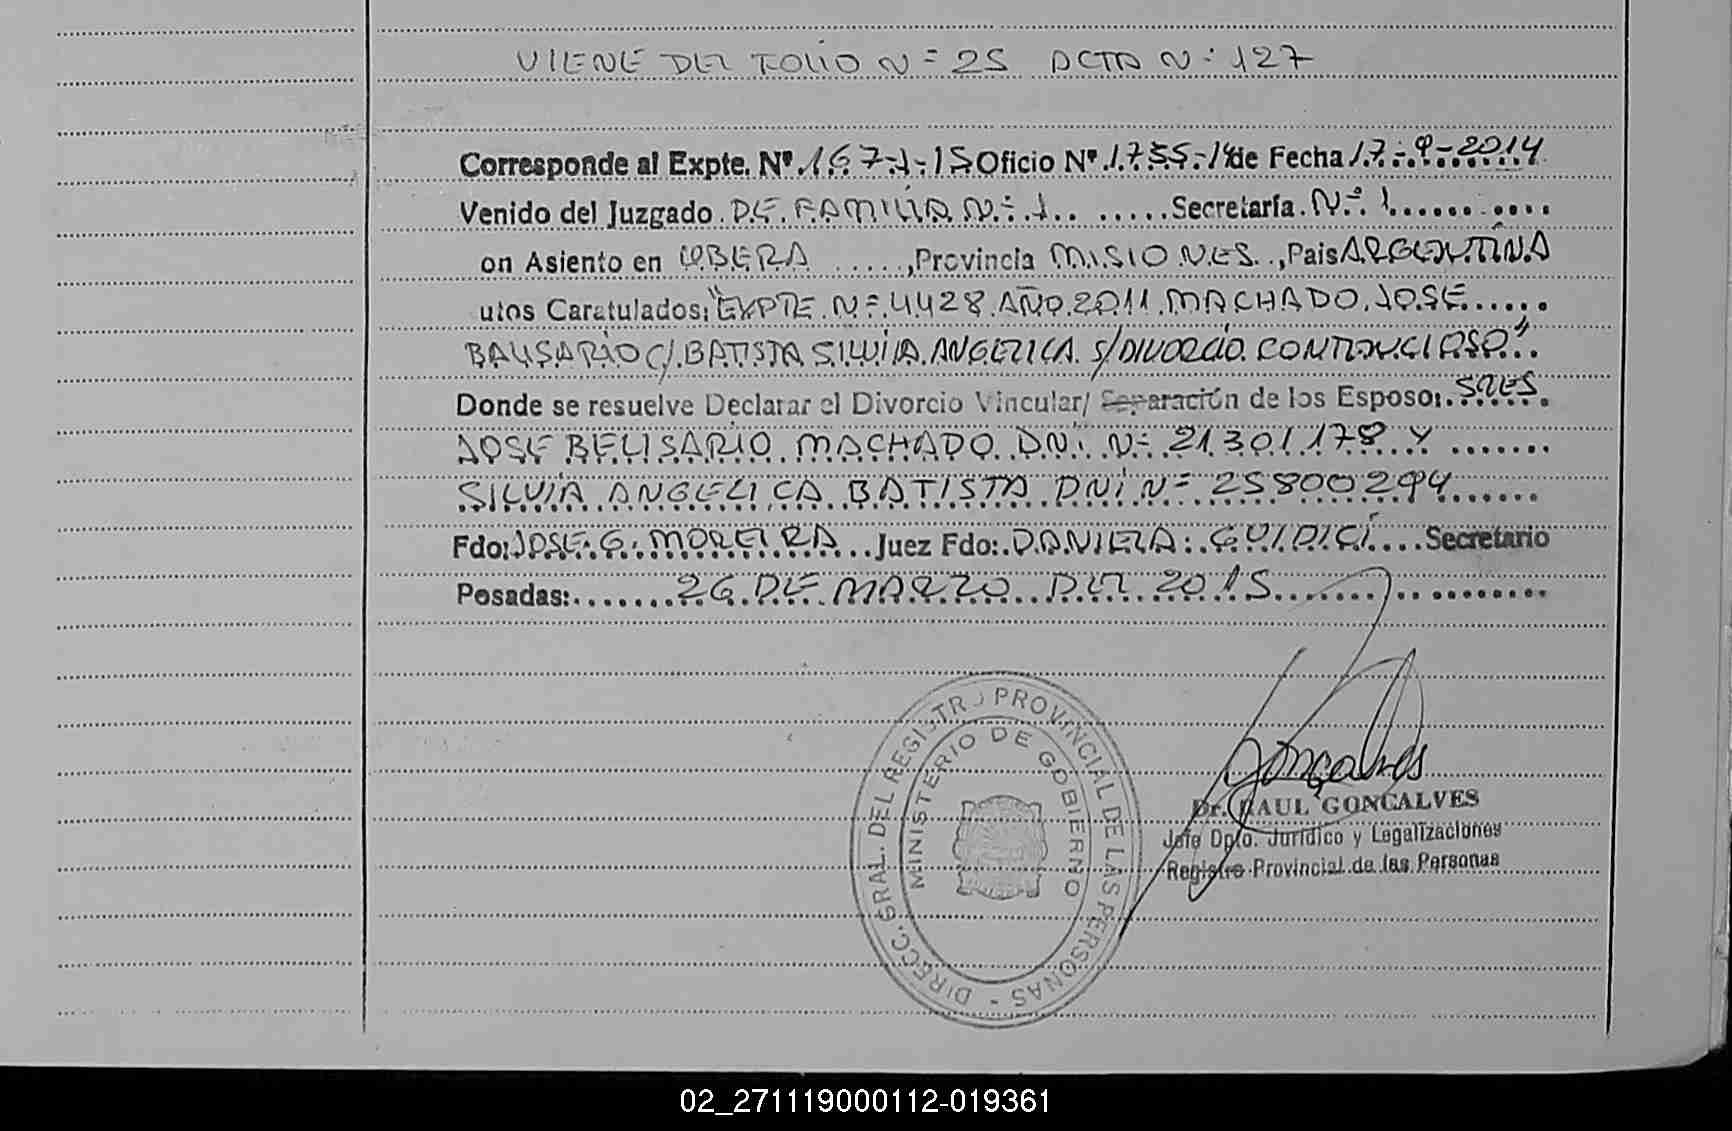 VIENE DEL FOLIO N= 25 ACTA N: 127
Corresponde al Expte. Nº 167-1-15 Oficio Nº 1755-14 de Fecha 17-9-2014
Venido del Juzgado DE FAMILIA N: 1 Secretaría Nº 1
on Asiento en OBERA, Provincia MISIONES, Pais ARGENTINA
utos Caratulados: "EXPTE N= 4428 AÑO 2011 MACHADO JOSE
BALISARIO C/ BATISTA SILVIA ANGELICA S/ DIVORCIO CONTENCIOSO"
Donde se resuelve Declarar el Divorcio Vincular/ Separación de los Esposos: SRES
JOSE BELISARIO MACHADO DNI N= 21301178 Y
SILVIA ANGELICA BATISTA DNI N= 25800294
Fdo: JOSE G. MOREIRA Juez Fdo: DANIELA GUIDICI Secretario
Posadas: 26 DE MARZO DEL 2015
DIRECC. GRAL. DEL REGISTRO PROVINCIAL DE LAS PERSONAS -
MINISTERIO DE GOBIERNO
Gonçalves
Dr. RAUL GONCALVES
Jefe Dpto. Jurídico y Legalizaciones
Registro Provincial de las Personas
02_271119000112-019361